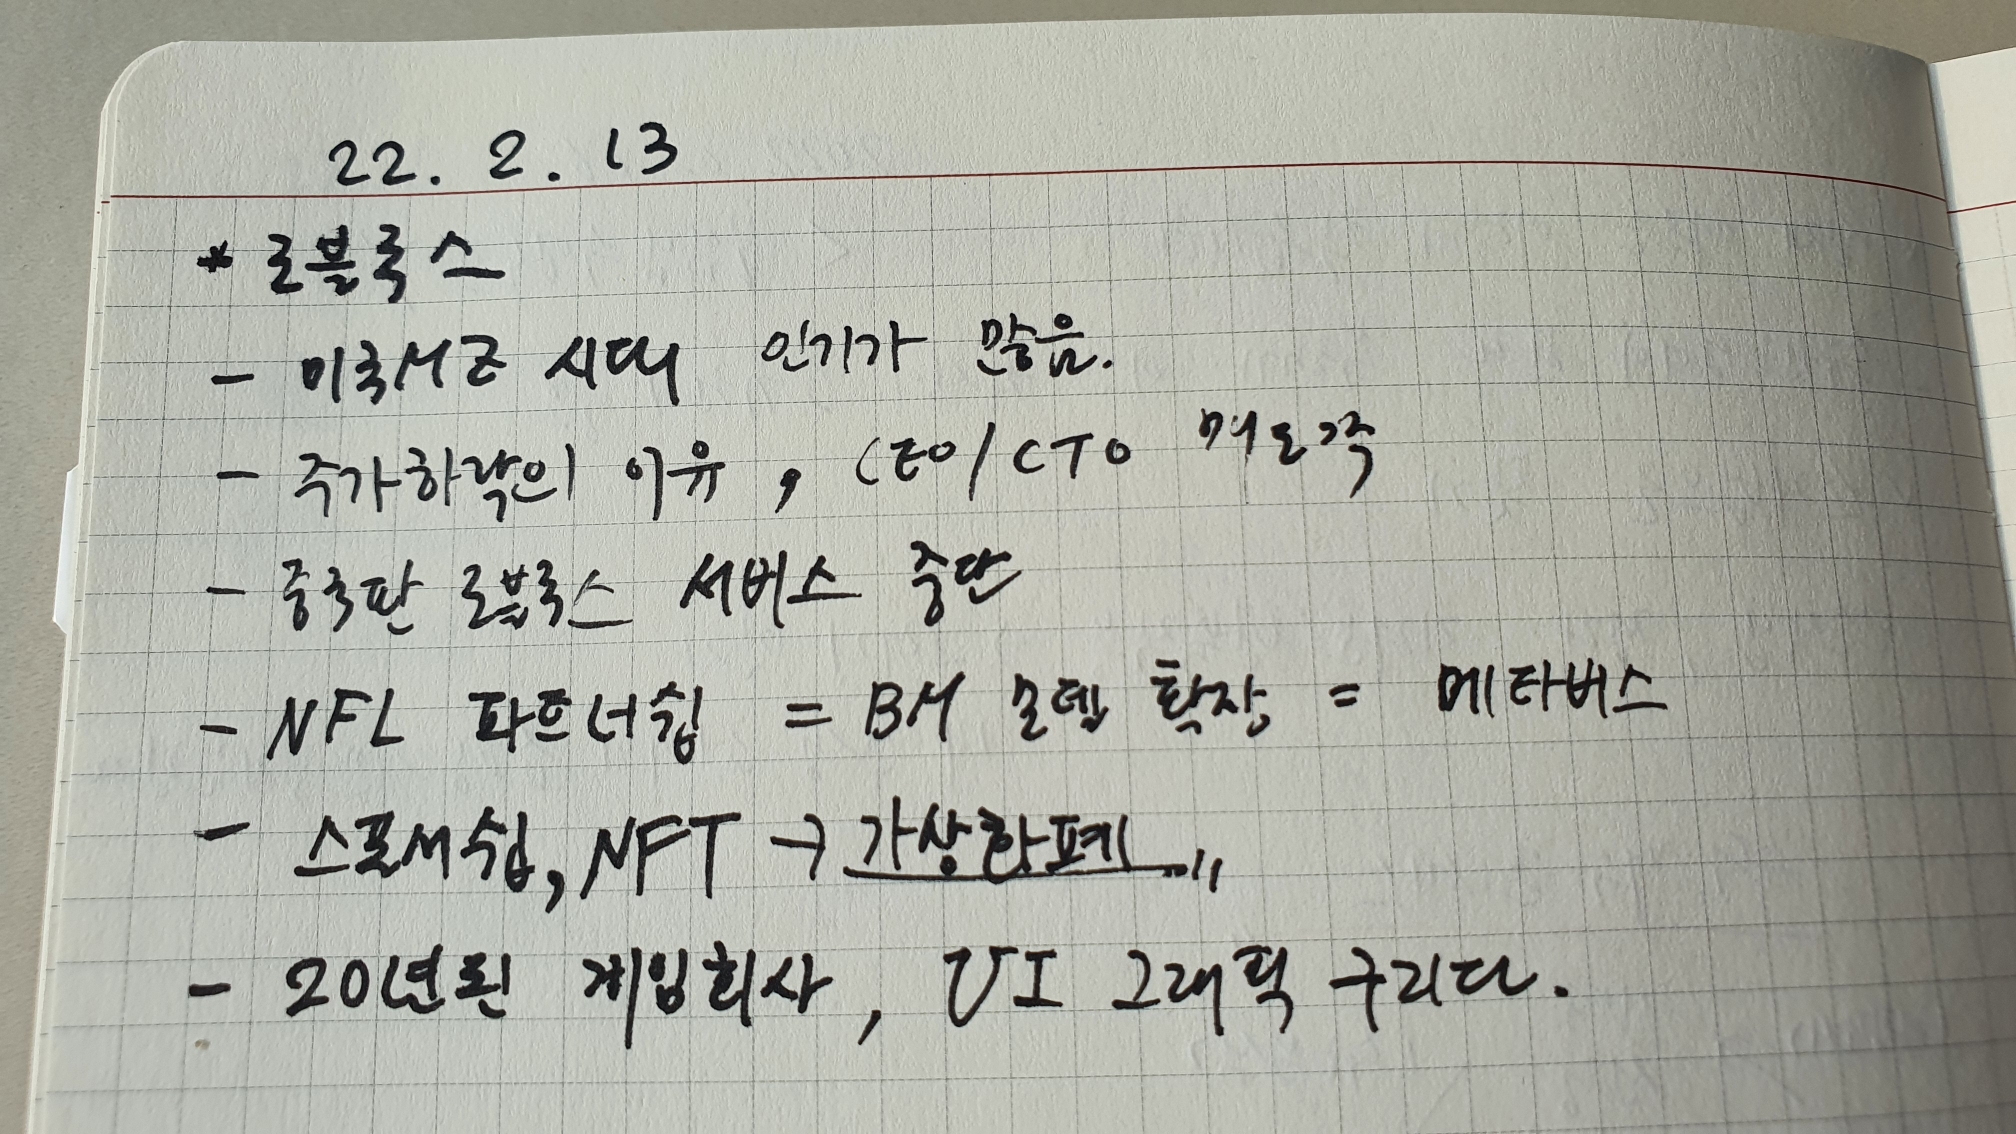 22. 2. 13
* 로블록스
- 미국서도 시대 인기가 많음.
- 주가하락의 이유, CEO/CTO 매도중
- 중국판 로블록스 서버스 중단
- NFL 파트너쉽 = BM 모델 확장 = 메타버스
- 스폰서쉽, NFT → 가상화폐 ..,,
- 20년된 게임회사, UI 그래픽 구리다.